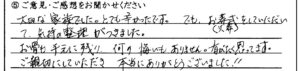 ⑤ご意見・ご感想をお聞かせください
大切な家族でした。とても辛かったです。でも、お葬式をしていただい
(火葬)
て、気持の整理がつきました。
お骨も手元に残り、何の悔いもありません。有がたく思ってます。
ご親切にしていただき 本当にありがとうございました!!